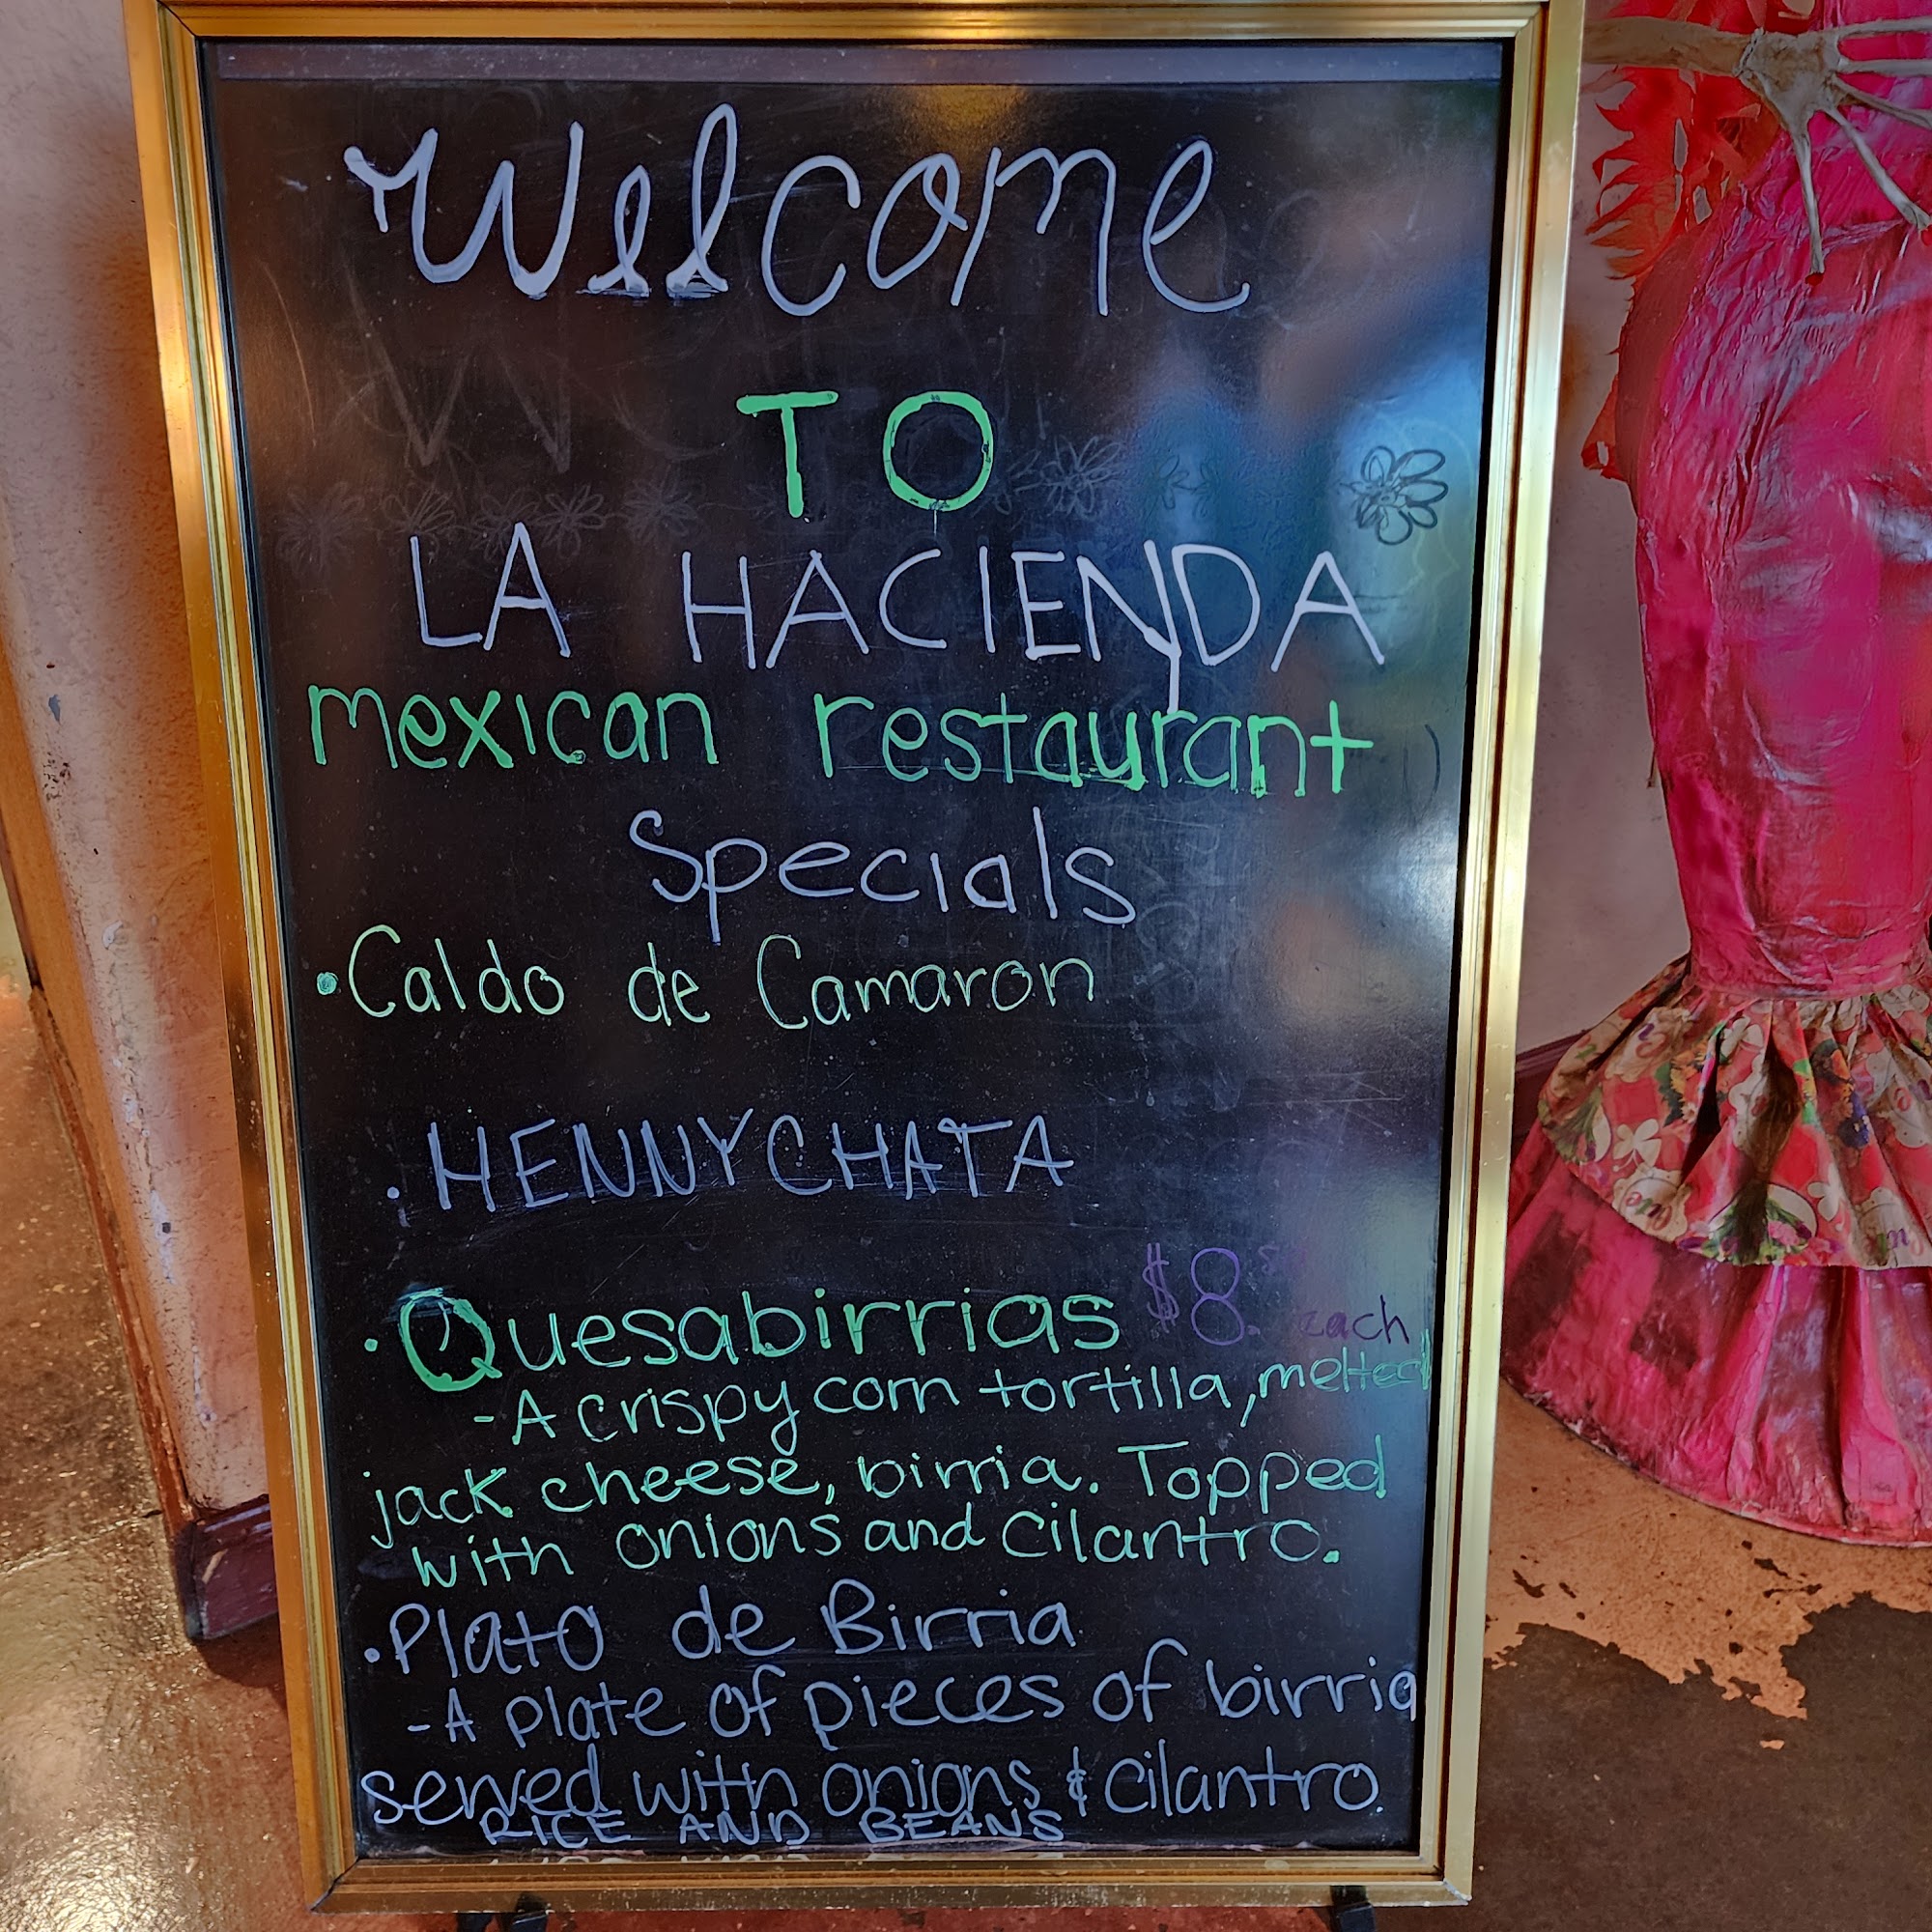 Welcome
TO
LA HACIENDA
mexican restaurant
Specials
• Caldo de Camaron
• HENNYCHATA
• Quesabirrias $8. each
- A crispy corn tortilla, melted
jack cheese, birria. Topped
with onions and cilantro.
• Plato de Birria
- A plate of pieces of birria
served with onions & cilantro
RICE AND BEANS